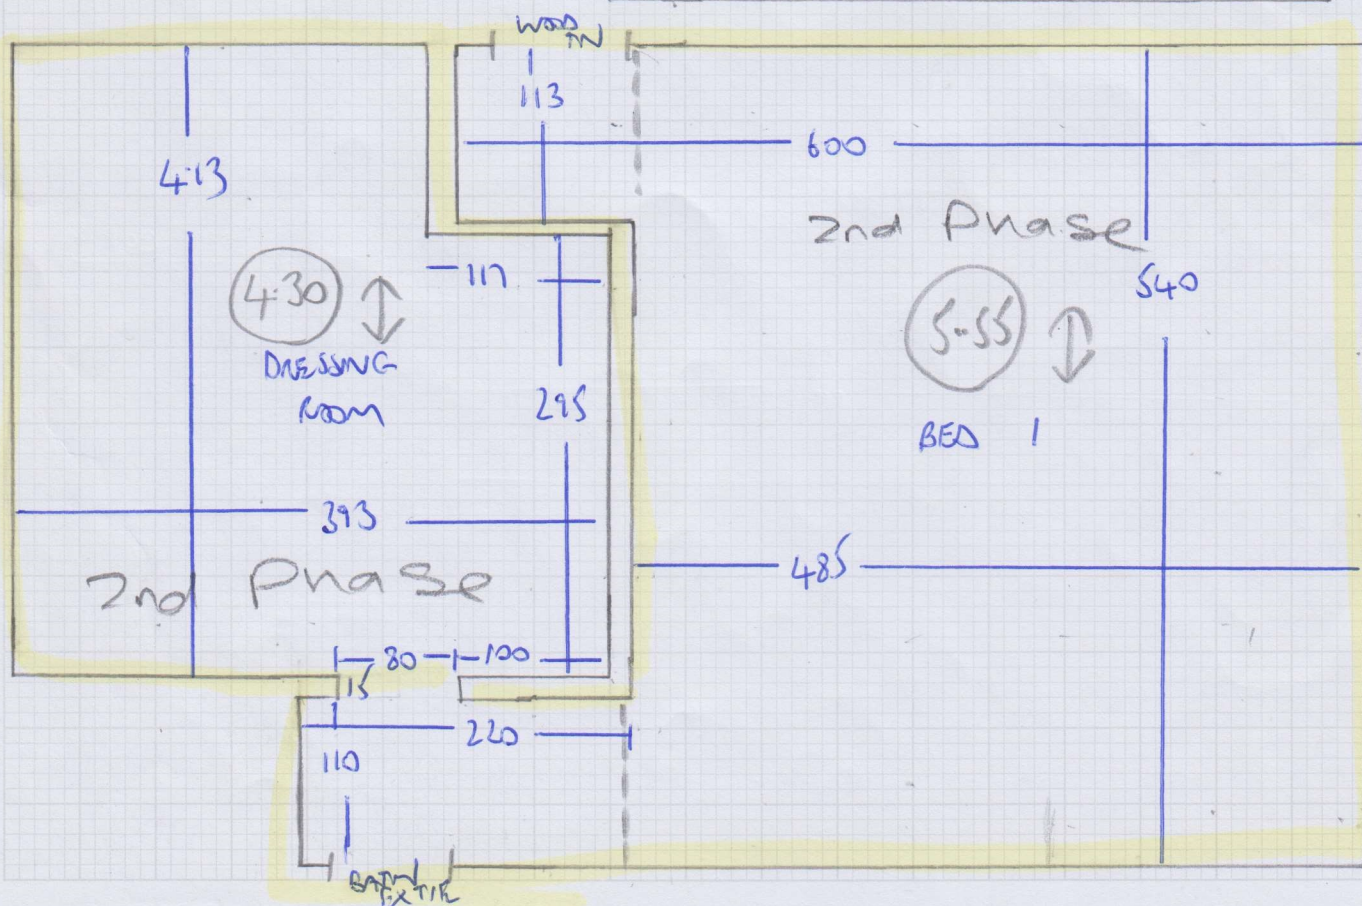 WOOD
IN
113
600
413
2nd Phase
4.30
117
540
5.55
DRESSING
ROOM
295
BED 1
393
485
2nd Phase
80
100
15
220
110
BATH
EXT